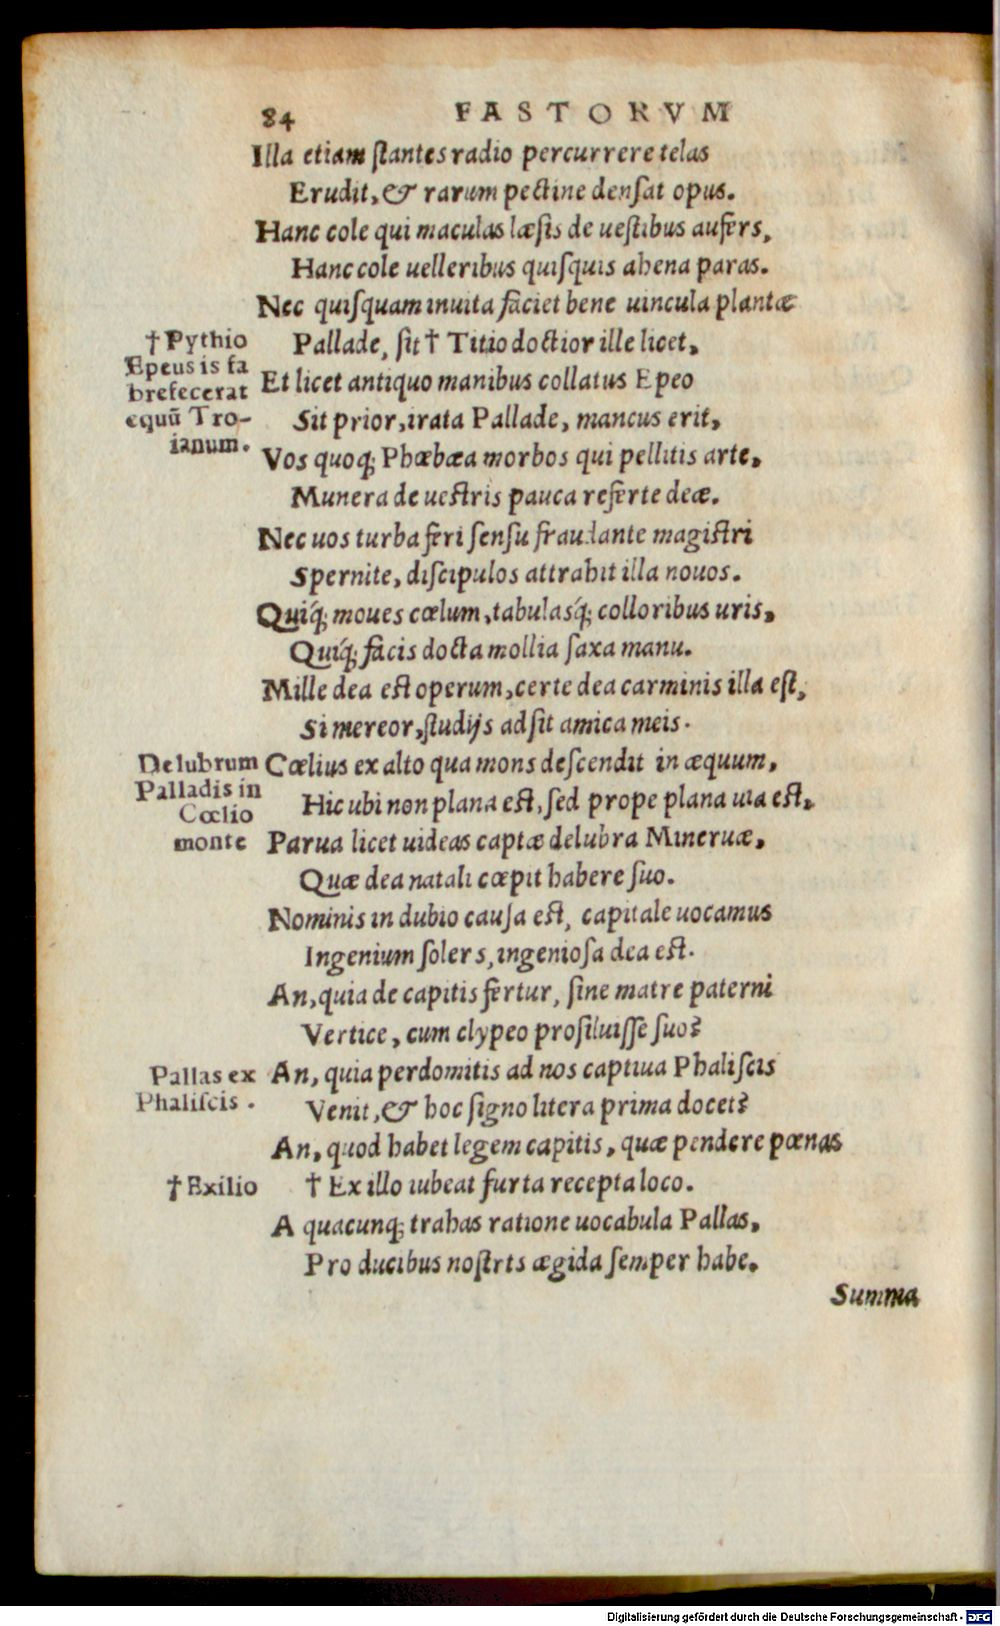 84 FASTORVM
Illa etiam ſtantes radio percurrere telas
Erudit, & rarum pectine denſat opus.
Hanc cole qui maculas læſis de ueſtibus aufers,
Hanc cole uelleribus quiſquis ahena paras.
Nec quiſquam inuita faciet bene uincula plantæ
† Pythio
Pallade, ſit † Titio doctior ille licet,
Epeus is fa
Et licet antiquo manibus collatus Epeo
brefecerat
equũ Tro-
Sit prior, irata Pallade, mancus erit,
ianum.
Vos quoq; Phœbæa morbos qui pellitis arte,
Munera de uestris pauca referte deæ.
Nec uos turba feri ſenſu fraudante magiſtri
Spernite, diſcipulos attrahit illa nouos.
Quiq́; moues cœlum, tabulasq́; colloribus uris,
Quiq́; facis docta mollia ſaxa manu.
Mille dea est operum, certe dea carminis illa eſt,
Si mereor, ſtudijs adſit amica meis.
Delubrum
Cœlius ex alto qua mons deſcendit in æquum,
Palladis in
Hic ubi non plana est, ſed prope plana uia est,
Cœlio
monte
Parua licet uideas captæ delubra Mineruæ,
Quæ dea natali cœpit habere ſuo.
Nominis in dubio cauſa est, capitale uocamus
Ingenium ſolers, ingenioſa dea est.
An, quia de capitis fertur, ſine matre paterni
Vertice, cum clypeo proſiluiſſe ſuo?
Pallas ex
An, quia perdomitis ad nos captiua Phaliſcis
Phaliſcis.
Venit, & hoc ſigno litera prima docet?
An, quod habet legem capitis, quæ pendere pœnas
† Exilio
† Ex illo iubeat furta recepta loco.
A quacunq; trahas ratione uocabula Pallas,
Pro ducibus noſtrts ægida ſemper habe.
Summa
Digitalisierung gefördert durch die Deutsche Forschungsgemeinschaft - DFG